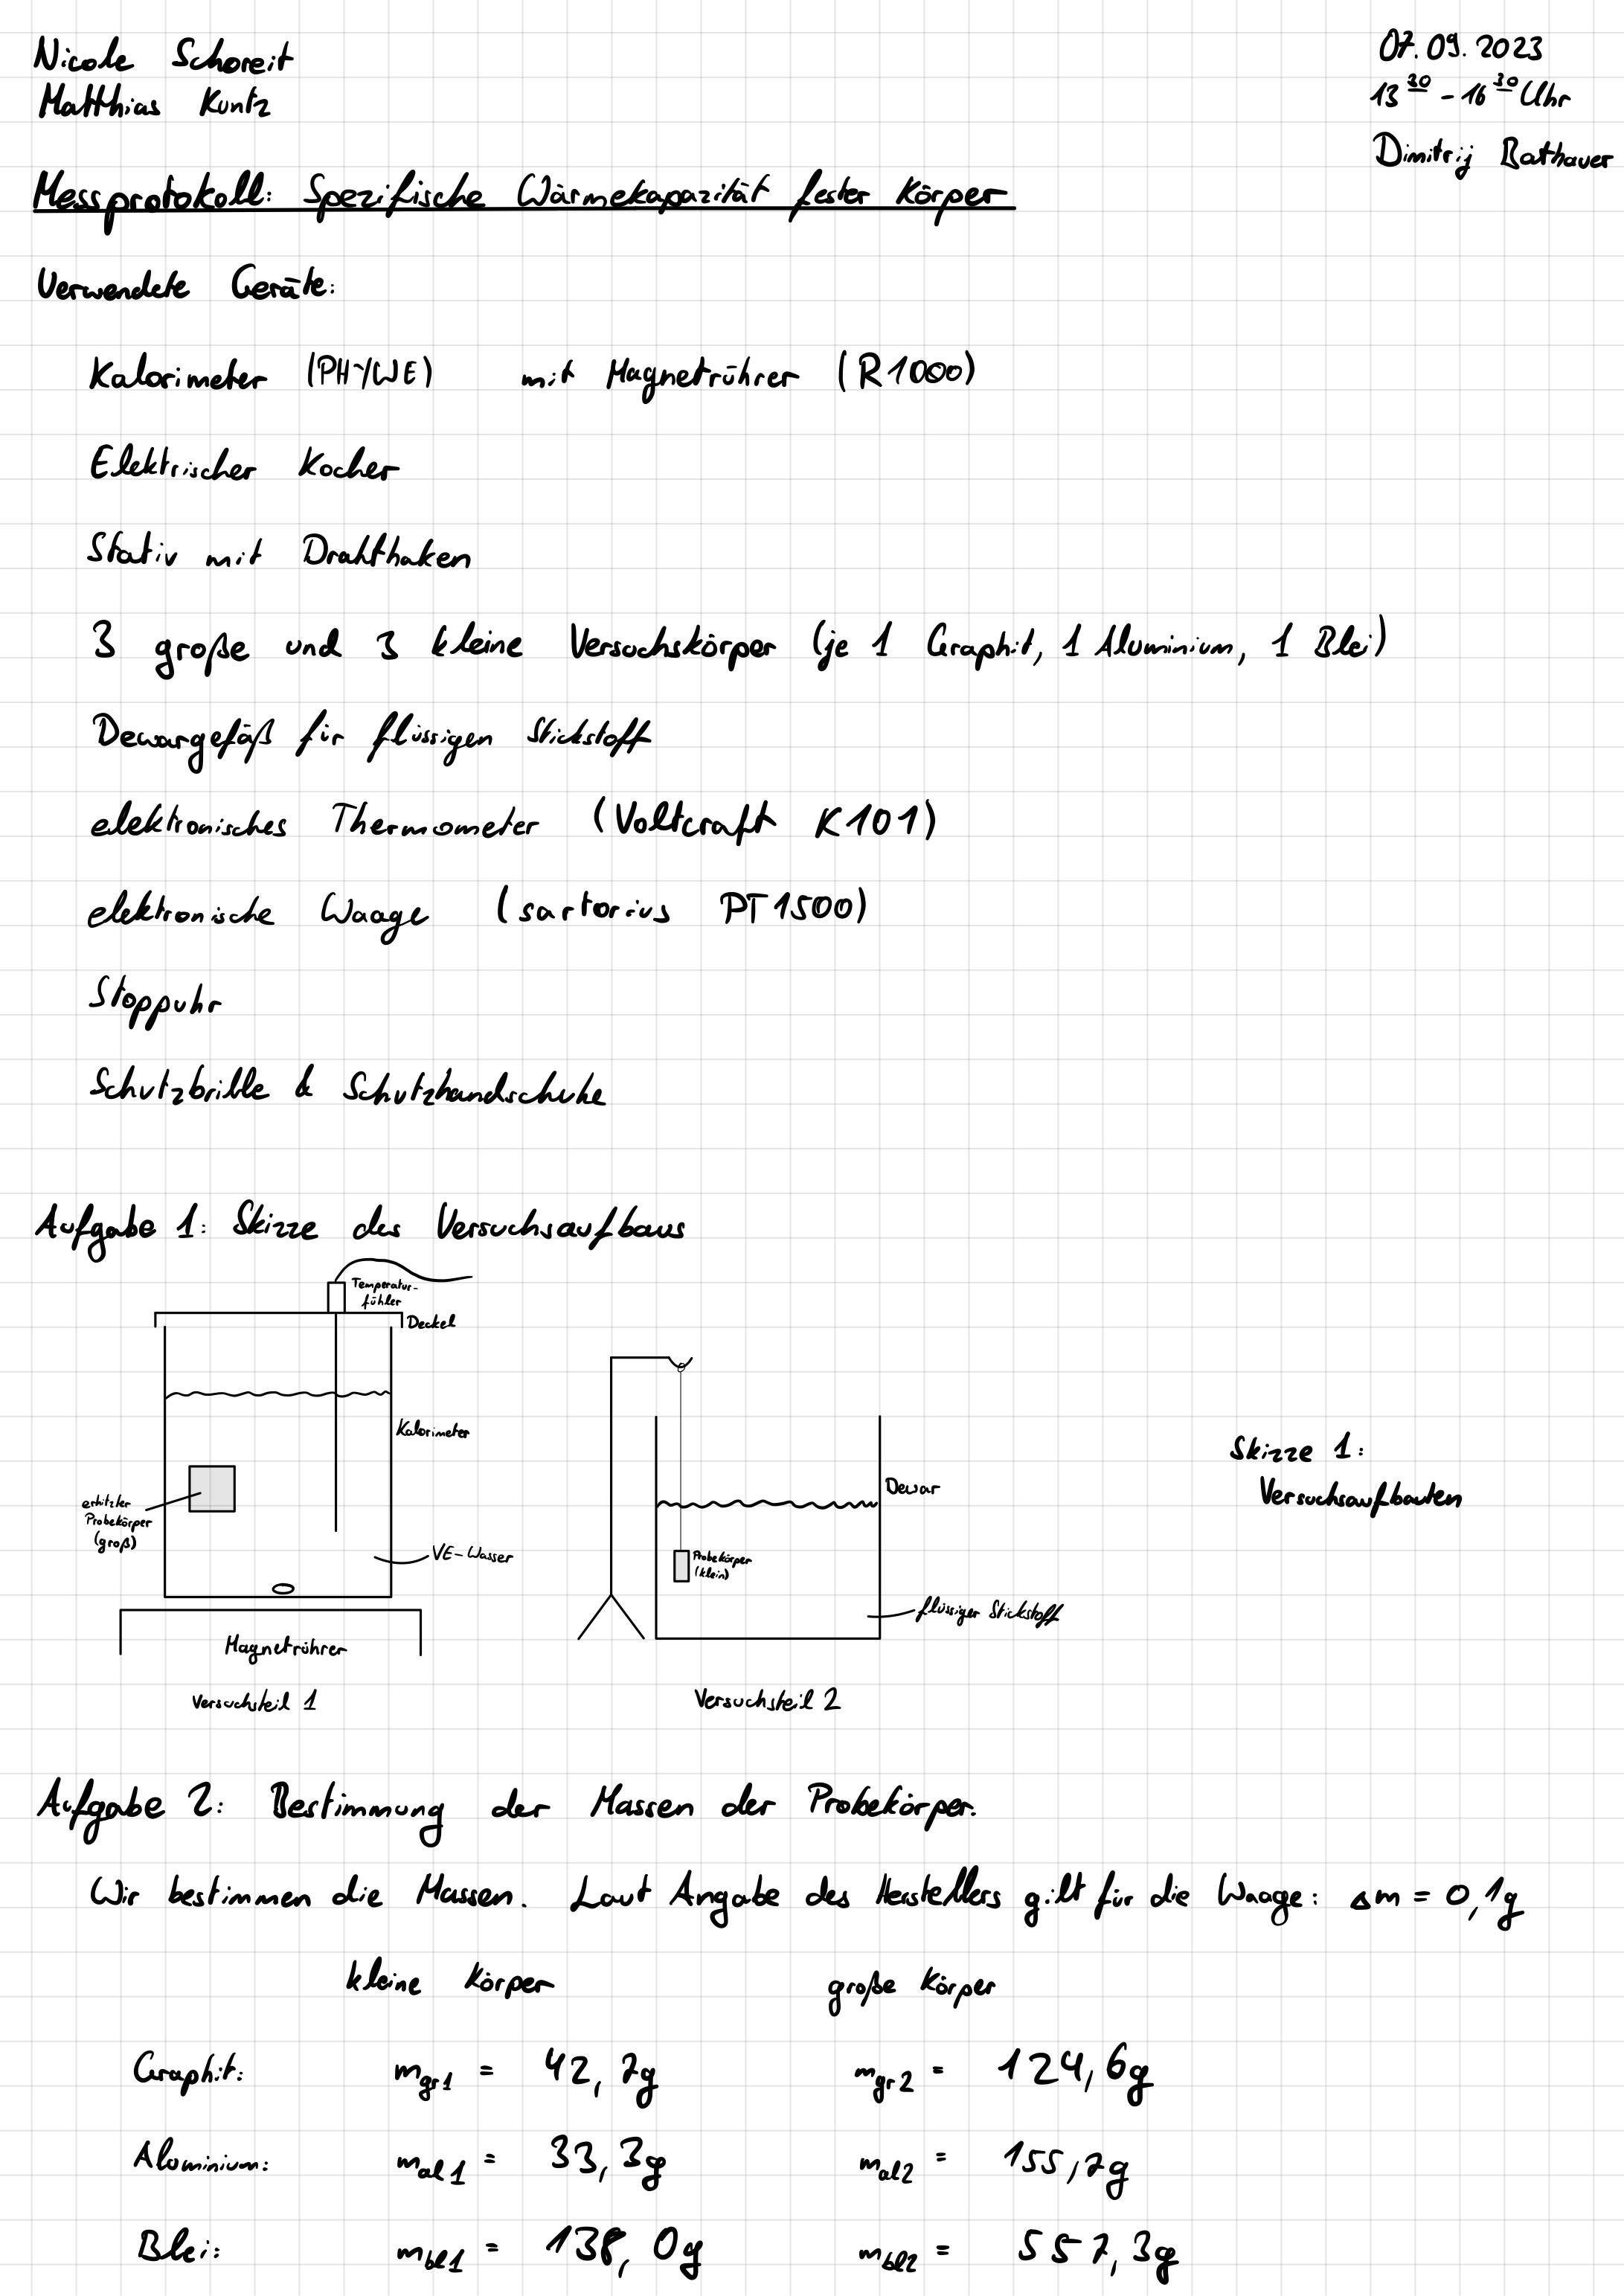 Nicole Schoreit
Matthias Kuntz
07.09.2023
13³⁰ - 16³⁰ Uhr
Dimitrij Bathauer
Messprotokoll: Spezifische Wärmekapazität fester Körper
Verwendete Geräte:
Kalorimeter (PHYWE) mit Magnetrührer (R1000)
Elektrischer Kocher
Stativ mit Drahthaken
3 große und 3 kleine Versuchskörper (je 1 Graphit, 1 Aluminium, 1 Blei)
Dewargefäß für flüssigen Stickstoff
elektronisches Thermometer (Voltcraft K101)
elektronische Waage (sartorius PT1500)
Stoppuhr
Schutzbrille & Schutzhandschuhe
Aufgabe 1: Skizze des Versuchsaufbaus
Temperatur-
fühler
Deckel
Kalorimeter
erhitzter
Probekörper
(groß)
VE-Wasser
Magnetrührer
Versuchsteil 1
Dewar
Probekörper
(klein)
flüssiger Stickstoff
Versuchsteil 2
Skizze 1:
Versuchsaufbauten
Aufgabe 2: Bestimmung der Massen der Probekörper.
Wir bestimmen die Massen. Laut Angabe des Herstellers gilt für die Waage: Δm = 0,1g
kleine Körper große Körper
Graphit: m_gr1 = 42,7g m_gr2 = 124,6g
Aluminium: m_al1 = 33,3g m_al2 = 155,7g
Blei: m_bl1 = 138,0g m_bl2 = 557,3g